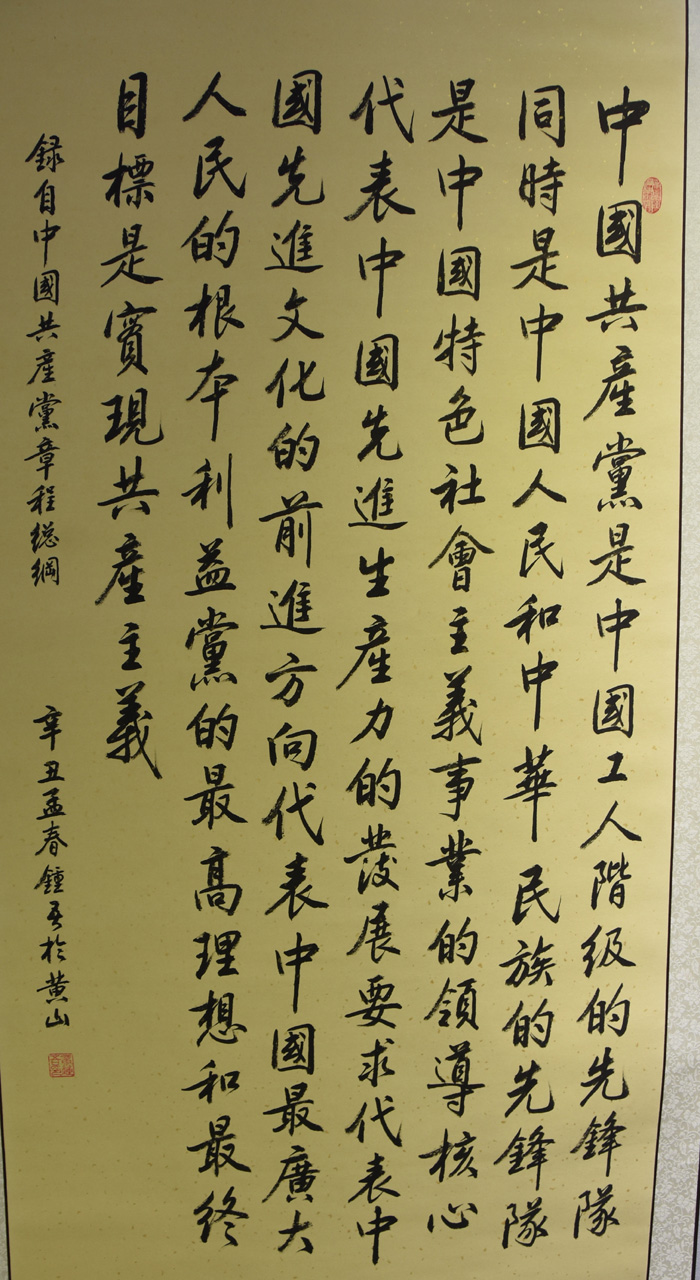 中國共產黨是中國工人階級的先鋒隊
同時是中國人民和中華民族的先鋒隊
是中國特色社會主義事業的領導核心
代表中國先進生產力的發展要求代表中
國先進文化的前進方向代表中國最廣大
人民的根本利益黨的最高理想和最終
目標是實現共產主義
録自中國共產黨章程總綱
辛丑孟春鍾吾於黄山